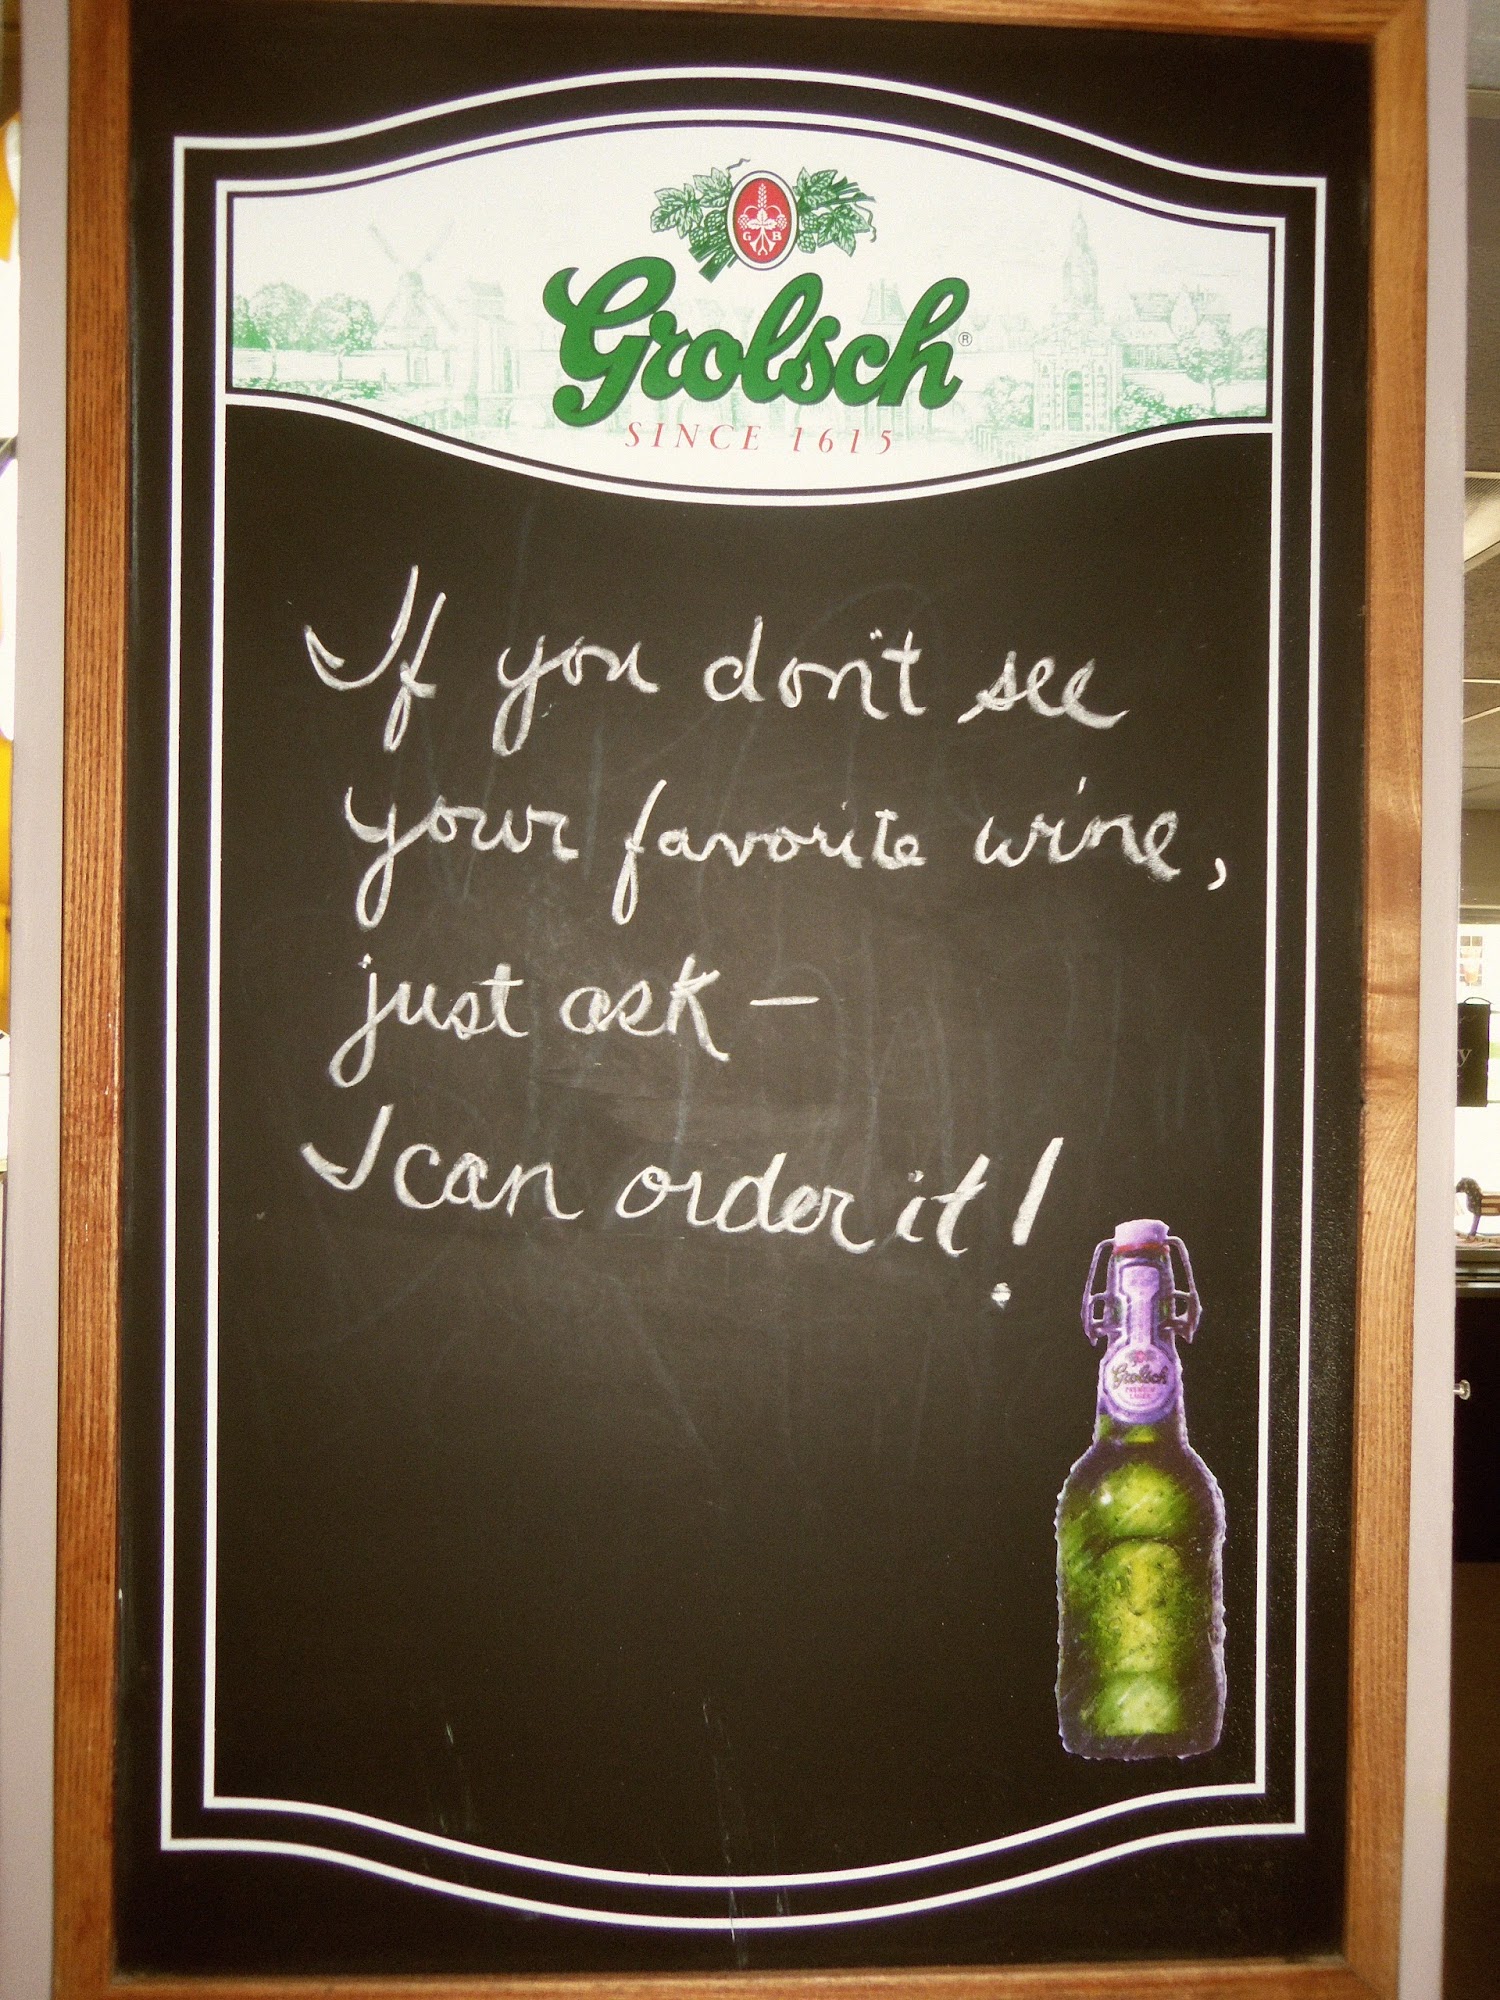 G B
Grolsch®
SINCE 1615
If you don't see
your favorite wine,
just ask —
I can order it!
Grolsch
PREMIUM
LAGER
y